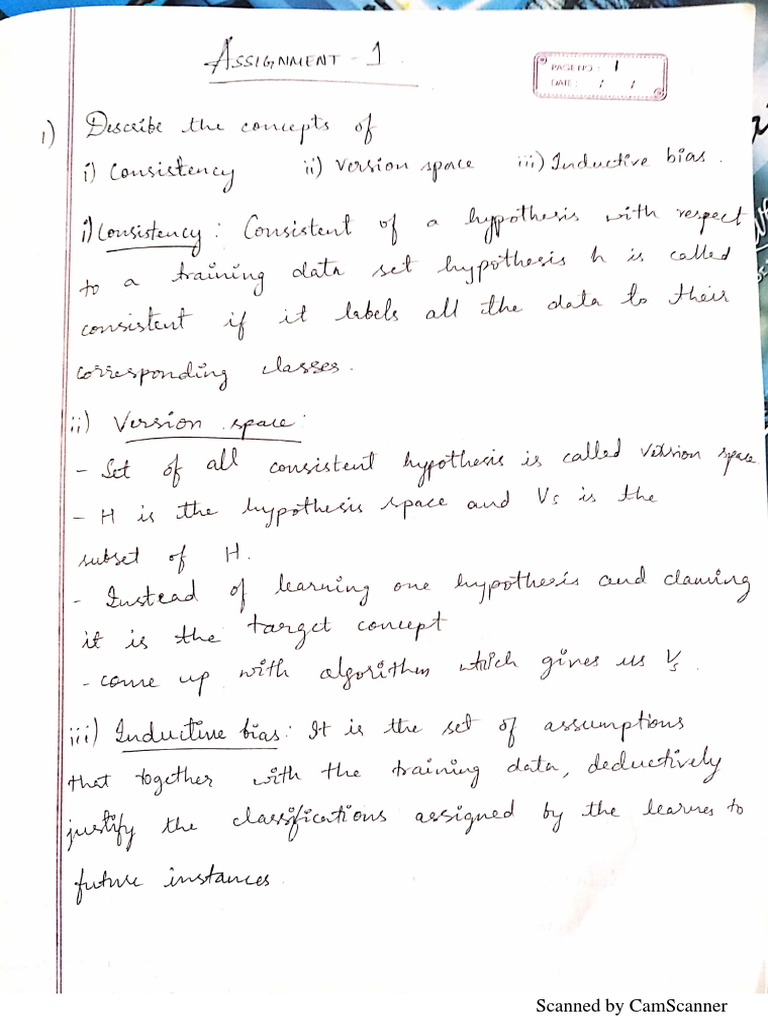 ASSIGNMENT - 1
PAGE NO: 1
DATE: / /
1) Describe the concepts of
i) Consistency ii) Version space iii) Inductive bias.
i) Consistency: Consistent of a hypothesis with respect
to a training data set hypothesis h is called
consistent if it labels all the data to their
corresponding classes.
ii) Version space:
- Set of all consistent hypothesis is called version space
- H is the hypothesis space and Vs is the
subset of H.
- Instead of learning one hypothesis and claming
it is the target concept
- come up with algorithm which gives us Vs.
iii) Inductive bias: It is the set of assumptions
that together with the training data, deductively
justify the classifications assigned by the learner to
future instances.
Scanned by CamScanner